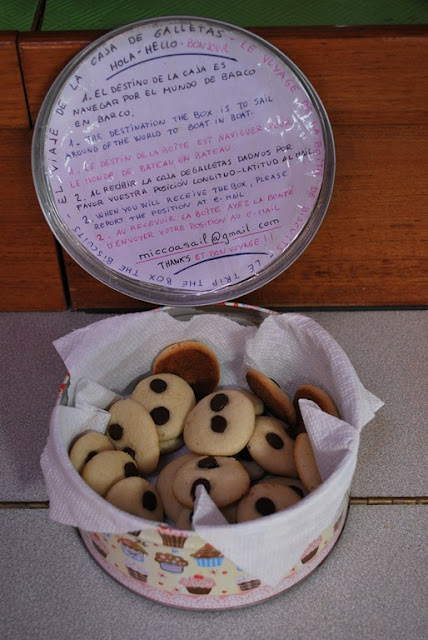 EL VIAJE DE LA CAJA DE GALLETAS - LE VOYAGE DE LA BOITE DE BISCUITS - THE TRIP THE BOX THE BISCUITS
HOLA - HELLO - BONJOUR
1. EL DESTINO DE LA CAJA ES
NAVEGAR POR EL MUNDO DE BARCO
EN BARCO.
1. THE DESTINATION THE BOX IS TO SAIL
AROUND OF THE WORLD TO BOAT IN BOAT.
1. LE DESTIN DE LA BOÎTE EST NAVIGUER
LE MONDE DE BATEAU EN BATEAU
2. AL RECIBIR LA CAJA DE GALLETAS DADNOS POR
FAVOR VUESTRA POSICIÓN LONGITUD-LATITUD AL MAIL
2. WHEN YOU WILL RECEIVE THE BOX, PLEASE
REPORT THE POSITION AT E-MAIL
2. AU RECEVOIR LA BOÎTE AYEZ LA BONTÉ
D'ENVOYER VOTRE POSITION AU E-MAIL
miccoasail@gmail.com
THANKS ET BON VOYAGE!!